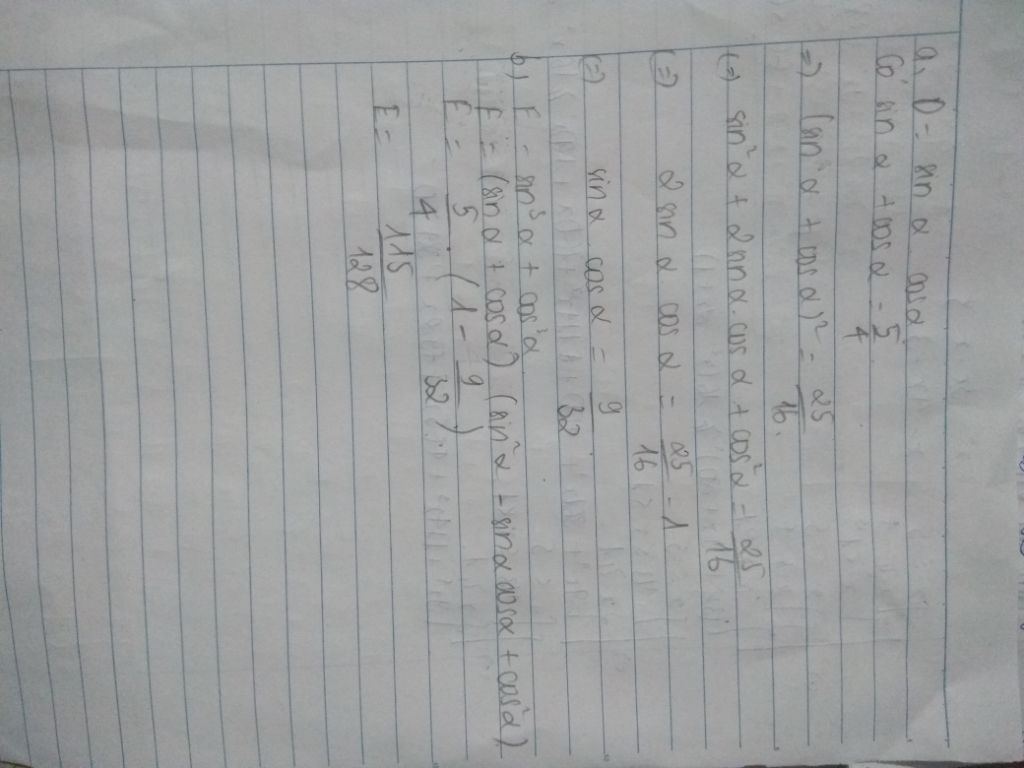 a, D = sin α cosα
Có sin α + cos α = 5/4
=> (sin² α + cos α)² = 25/16.
(=) sin²α + 2sinα.cos α + cos²α = 25/16
(=) 2 sin α cos α = 25/16 - 1
(=) sinα cosα = 9/32
b) F = sin³α + cos³α
F = (sin α + cosα) (sin²α - sinα cosα + cos²α)
F = 5/4 . (1 - 9/32)
E = 115/128